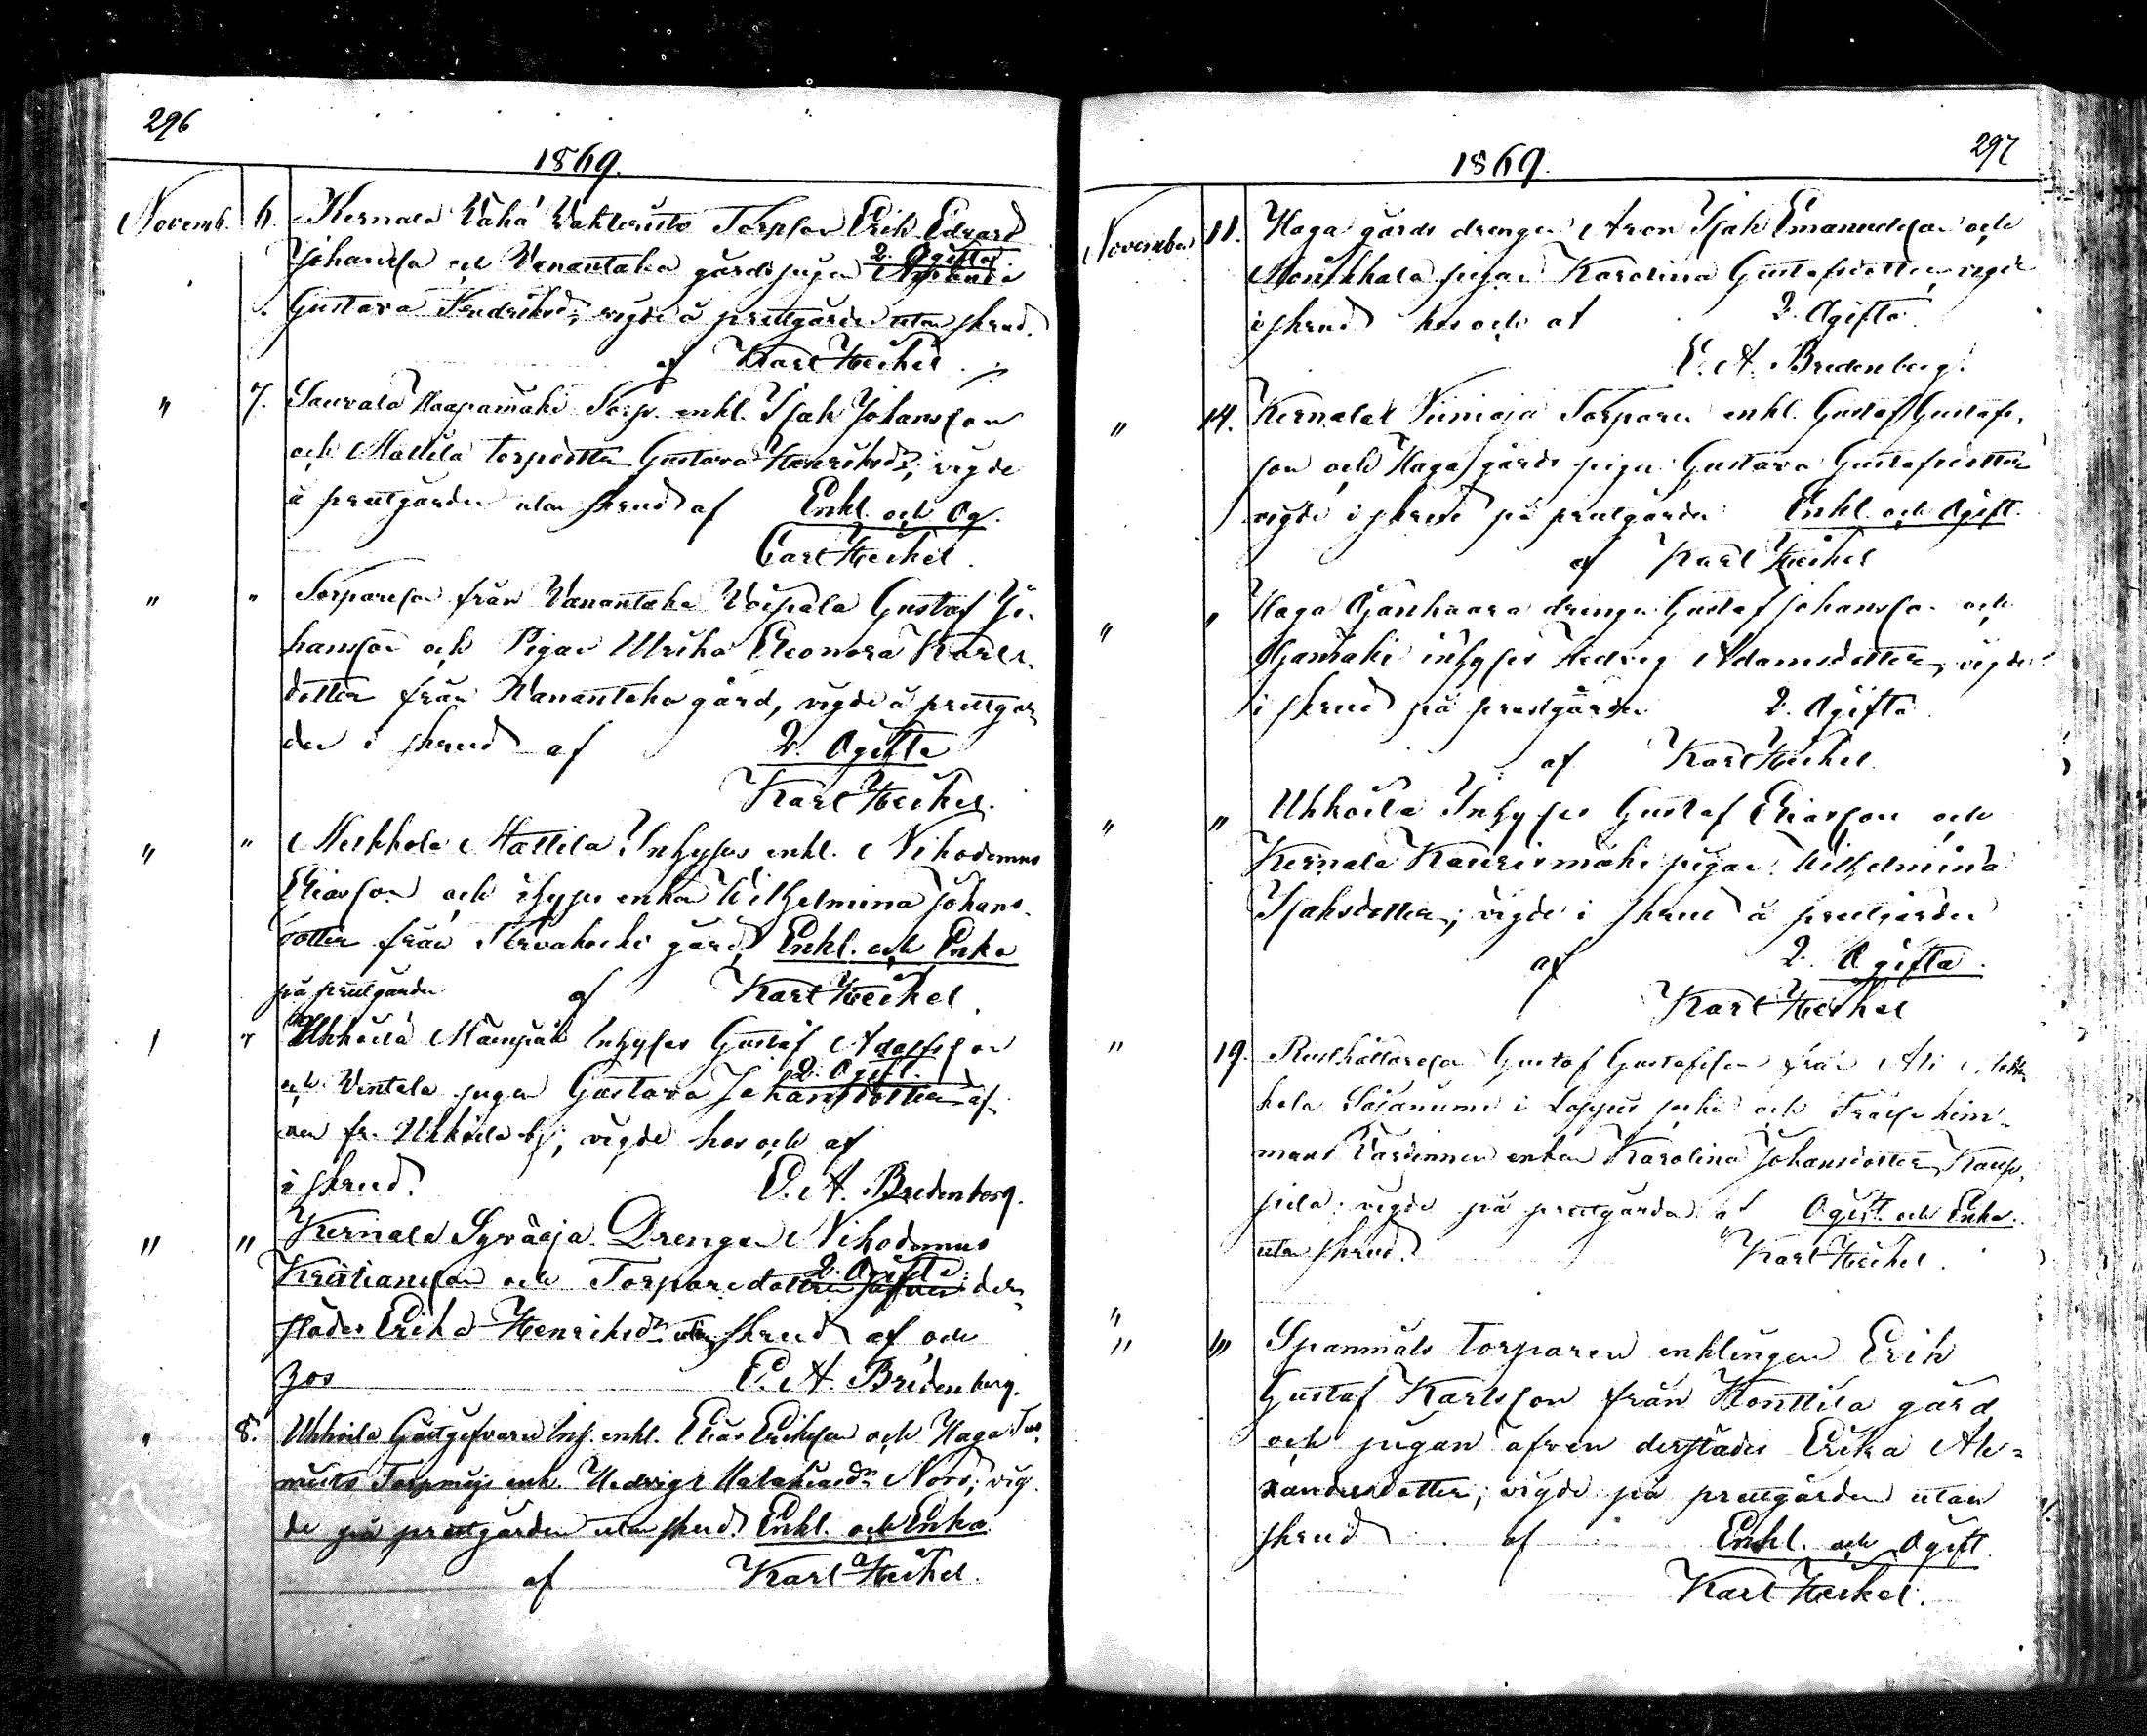 296
1869.
Novemb. 6. Kernala Vähä Torpson Erik Edvard
Johansson och Vanantaka gårds pigan
2. Ogifta
Gustava Hendriksdr, vigde å prestgården utan skrud.
af Karl Heikel
" 7. Saurala Haapamäki Torp. enkl. Isak Johansson
och Mattila torpdottr Gustava Henriksdr; vigde
å prestgården utan skrud af Enkl. och Og.
Carl Heikel.
" " Torpareson från Vanantaka Voipala Gustaf Jo-
hansson och Pigan Ulrika Eleonora Karls-
dotter från Vanantaka gård, vigde å prestgår-
den i skrud af 2. Ogifta
Karl Heikel.
" " Mattila Inhyses enkl. Nikodemus
Eliasson och ihyses enkan Wilhelmina Johans-
dotter från Tervakoski gård, Enkl. och Enka
på prestgården af Karl Heikel
" Uhkoila Inhyses Gustaf Adolfsson
2. Ogift.
och Ventola pigan Gustava Johansdotter äf-
ven fr. Uhkoila by; vigde hos och af
i skrud. E. A. Bredenberg.
" " Kernala Syväoja Drengen Nikodemus
2. Ogifta
Kristiansson och Torparedottren jäfven der-
städes Erika Henriksdr utan skrud af och
hos E. A. Bredenberg.
" 8. Uhkoila Gästgifvare Inh. enkl. Elias Eriksson och Haga
enk. Hedvig Nord; vig-
de på prestgården utan skrud. Enkl. och Enka
af Karl Heikel.
297
1869.
November 11. Haga gårds drengen Aron Isak Emanuelsson och
Monikkala pigan Karolina Gustafsdotter, vigde
i skrud hos och af 2. Ogifta
E. A. Bredenberg.
" 14. Kernala Torparen enkl. Gustaf Gustafs-
son och Haga gårds pigan Gustava Gustafsdotter
vigde i skrud på prestgården Enkl. och Ogift.
af Karl Heikel
" " Haga Ojanhaara drengen Gustaf Johansson och
Ojamäki inhyses Hedvig Adamsdotter, vigde
i skrud på prestgården 2. Ogifta
af Karl Heikel
" " Uhkoila Inhyses Gustaf Eliasson och
Kernala Kaurismäki pigan Wilhelmina
Isaksdotter; vigde i skrud å prestgården
af 2. Ogifta.
Karl Heikel
" 19. Rusthållareson Gustaf Gustafsson från
i Loppis socken och Frälsehem-
mans Värdinnan enkan Karolina Johansdotter
vigde på prestgården af Ogift och Enka.
utan skrud. Karl Heikel.
"
" " Spannmåls torparen enklingen Erik
Gustaf Karlsson från Konttila gård
och pigan äfven derstädes Erika Ale-
xandersdotter; vigde på prestgården utan
skrud af Enkl. och Ogift
Karl Heikel.